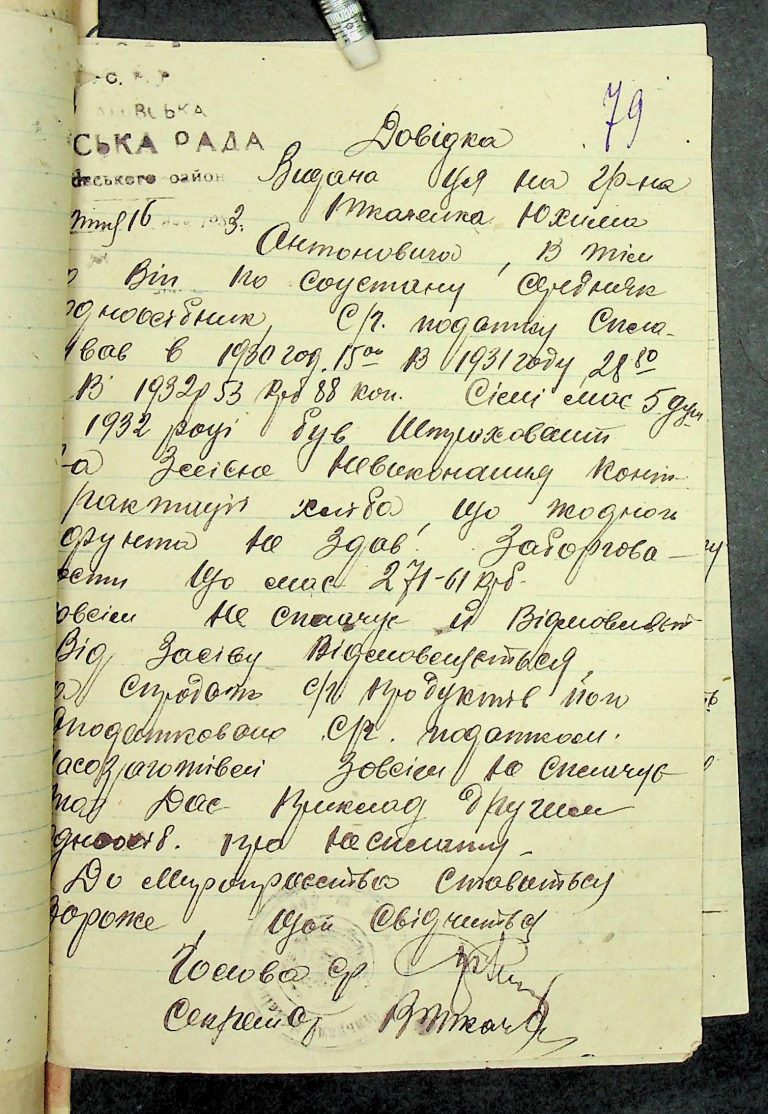 С. Р. Р
ВСЬКА
СЬКА РАДА
ського район
79
Довідка
Видана ця на гр-на
Ткаченка Юхима
16 193 3.
Антоновича, в тім
о Він по соцстану середняк
дноосібник, С/г. податку Спла-
вав в 1930 год. 15 00 В 1931 году 28 80
В 1932 р 53 крб 88 коп. Сімї має 5 душ
1932 році був Штрахований
-а Злісне Невиконання конт-
рактації хліба що жодного
фунта не Здав. Заборгова-
ости що має 271-61 крб.
овсім не сплачує й Відмовляєт
Від Засіву Відмовляється,
а спродаж с/г продуктів його
оподатковано с/г. податком.
ясозаготівлі Зовсім не сплачує
Дає приклад другим
дноосіб. про несплату
До міроприємства ставиться
Вороже, Що й Свідчиться
Голова ср
Секретар ВТкач